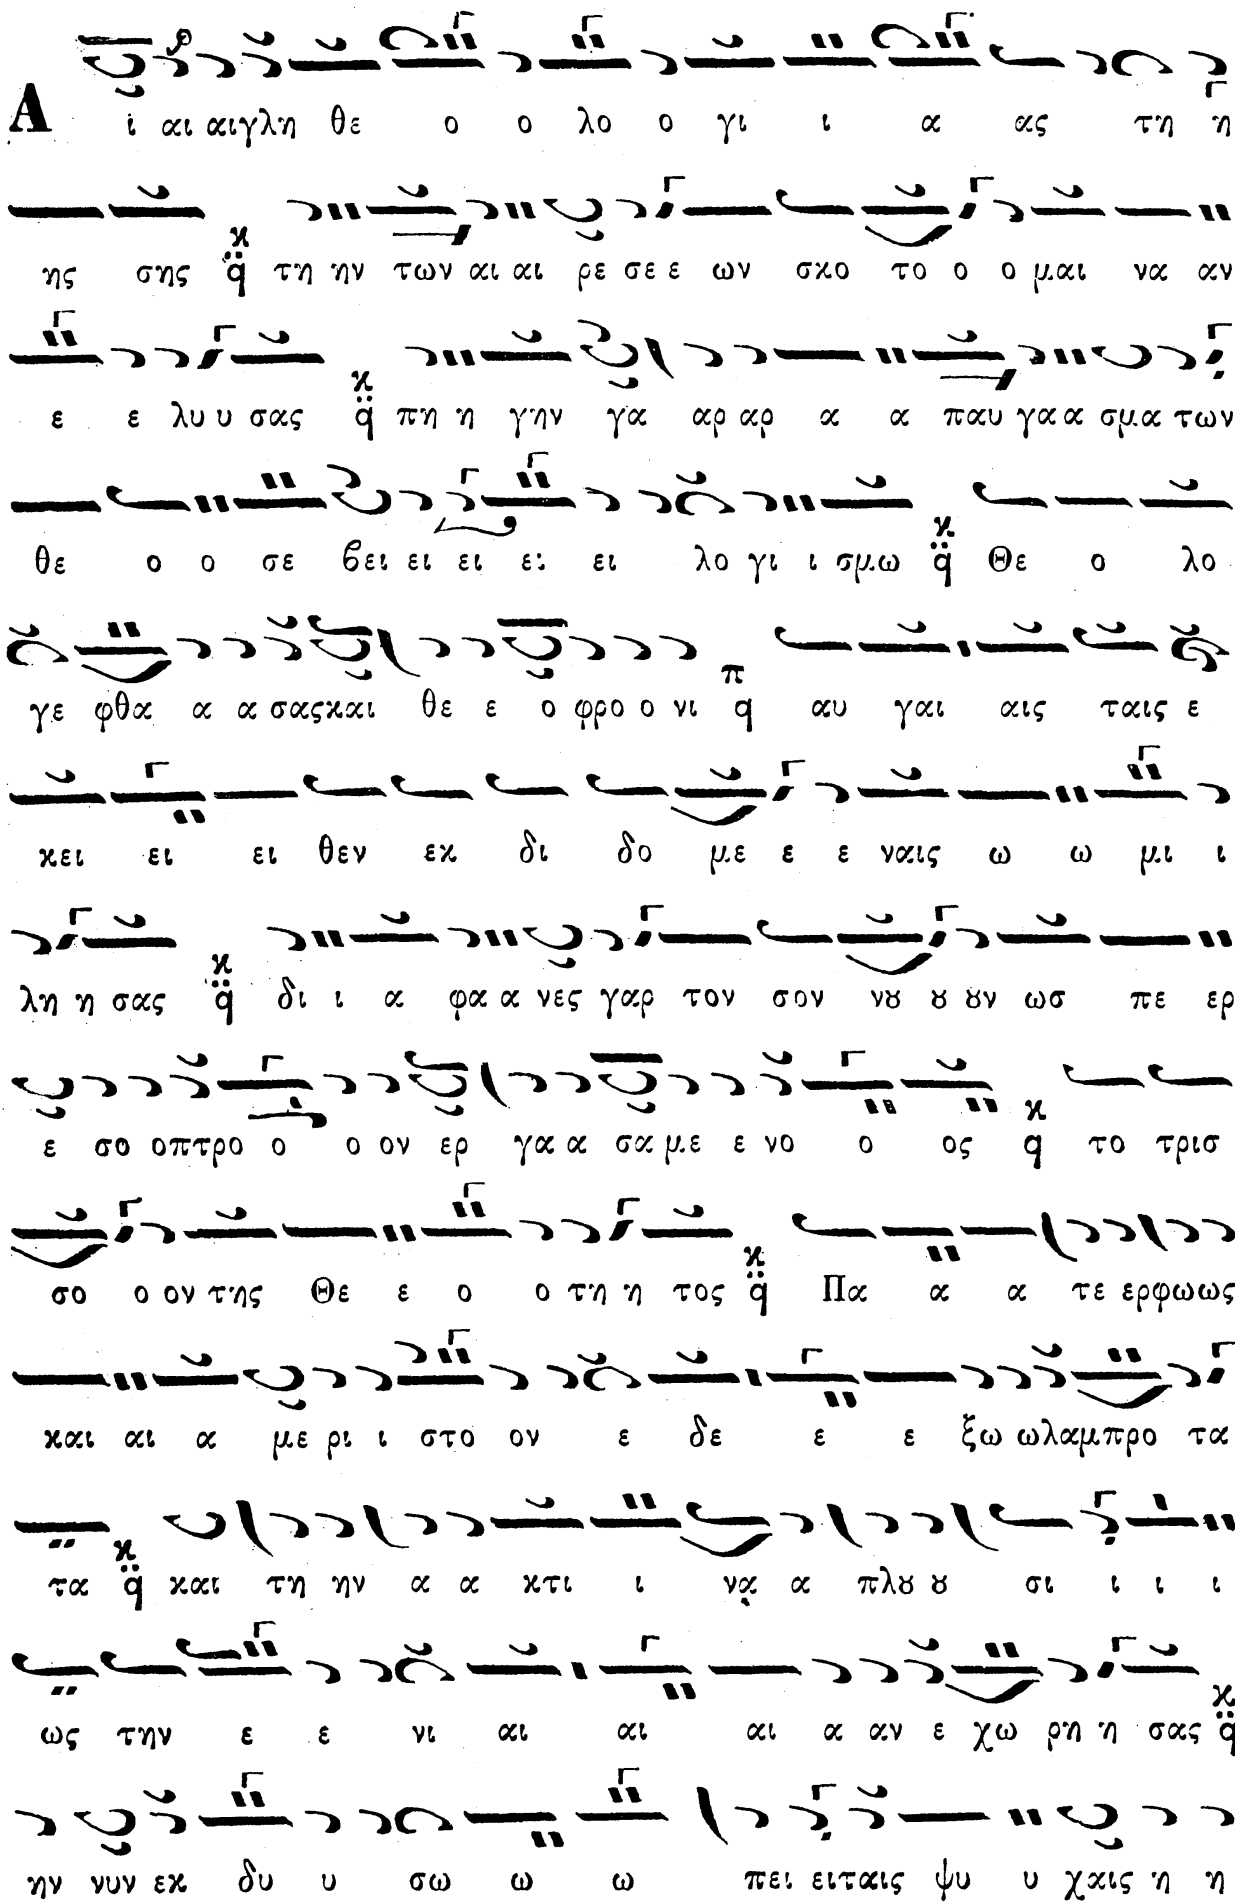 Α ι αι αιγλη θε ο ο λο ο γι ι α ας τη η
ης σης κ q τη ην των αι αι ρε σε ε ων σκο το ο ο μαι να αν
ε ε λυ υ σας κ q πη η γην γα αρ αρ α α παυ γα α σμα των
θε ο ο σε βει ει ει ει ει λο γι ι σμω κ q Θε ο λο
γε φθα α α σας και θε ε ο φρο ο νι π q αυ γαι αις ταις ε
κει ει ει θεν εκ δι δο με ε ε ναις ω ω μι ι
λη η σας κ q δι ι α φα α νες γαρ τον σον νȣ ȣ ȣν ωσ πε ερ
ε σο οπτρο ο ο ον ερ γα α σα με ε νο ο ος κ q το τρισ
σο ο ον της Θε ε ο ο τη η τος κ q Πα α α τε ερ φω ως
και αι α με ρι ι στο ον ε δε ε ε ξω ωλαμπρο τα
τα κ q και τη ην α α κτι ι να α πλȣ ȣ σι ι ι ι
ως την ε ε νι αι αι αι α αν ε χω ρη η σας κ q
ην νυν εκ δυ υ σω ω ω πει ει ταις ψυ υ χαις η η